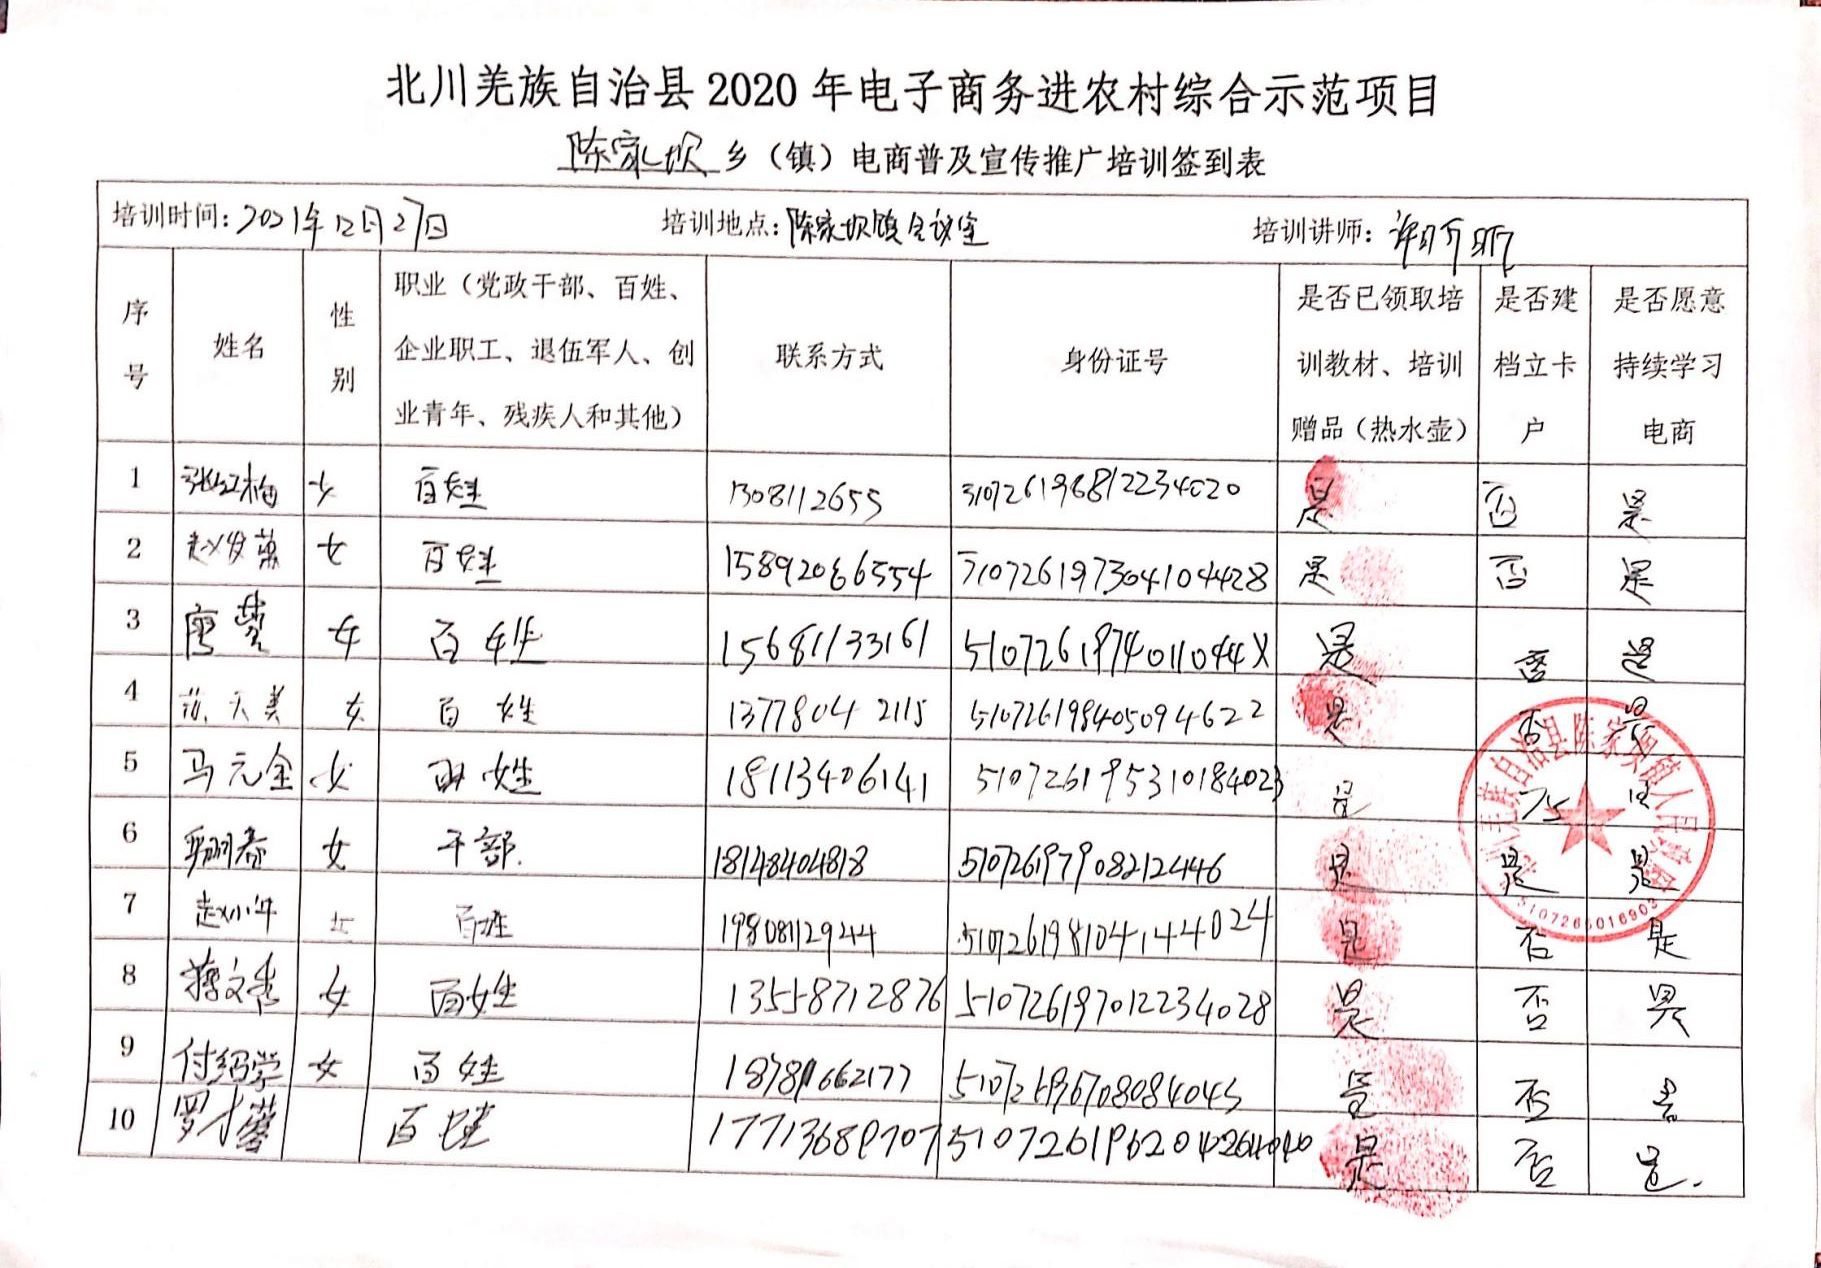 北川羌族自治县2020年电子商务进农村综合示范项目
陈家坝乡（镇）电商普及宣传推广培训签到表
培训时间：2021年12月27日 培训地点：陈家坝镇会议室 培训讲师：
序号 姓名 性别 职业（党政干部、百姓、企业职工、退伍军人、创业青年、残疾人和其他） 联系方式 身份证号 是否已领取培训教材、培训赠品（热水壶） 是否建档立卡户 是否愿意持续学习电商
1 张红梅 女 百姓 1308112655 510726196812234020 是 否 是
2 女 百姓 15892066554 510726197304104428 是 否 是
3 女 百姓 15681133161 51072619740110944X 是 否 是
4 女 百姓 13778042115 510726198405094622 是 否 是
5 马元金 女 百姓 18113406141 510726195310184023 是 否 是
6 女 干部. 18148404818 510726197908212446 是 是 是
7 赵小年 女 百姓 19808112944 510726198104144024 是 否 是
8 蒋文秀 女 百姓 13558712876 510726197012234028 是 否 是
9 付绍学 女 百姓 18781662177 是 否 是
10 百姓 17713689707 是 否 是.
北川羌族自治县陈家坝镇人民政府
5107265016903